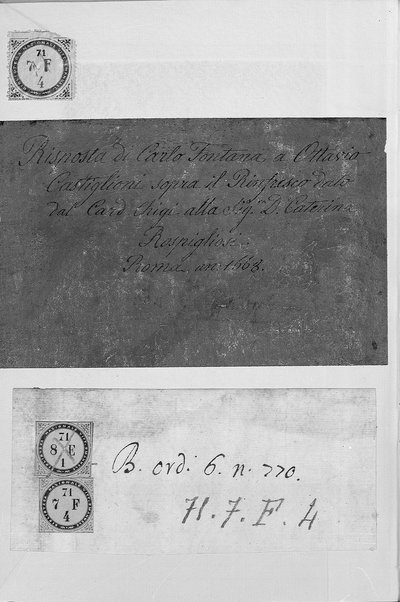 71
7 F
4
Risposta di Carlo Fontana, a Ottavio
Castiglioni sopra il Rinfresco dato
dal Card. Chigi alla Sig.ª D. Caterina
Rospigliosi.
Roma an. 1668.
71
8 E
1
B. ord. 6. n. 770.
71
7 F
4
71. 7. F. 4